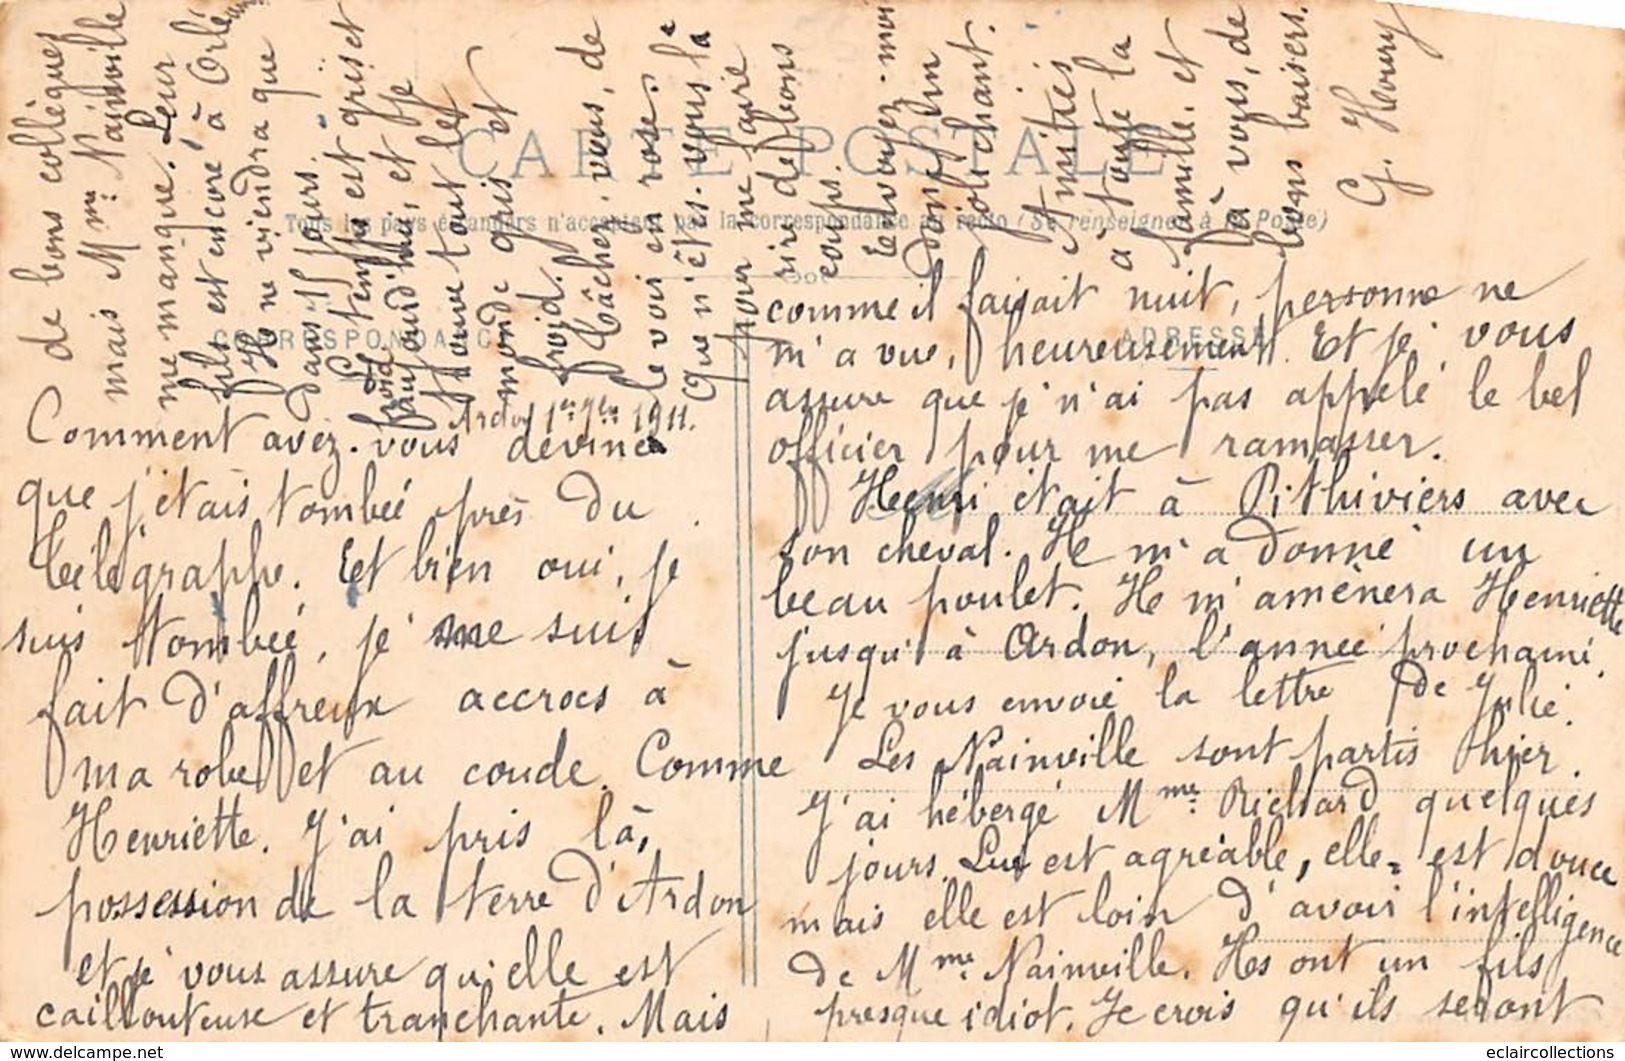 CARTE POSTALE
Tous les pays étrangers n'acceptent pas la correspondance au recto (Se renseigner à la Poste)
CORRESPONDANCE
ADRESSE
Ardon 1er 1911.
Comment avez-vous deviné
que j'étais tombée près du
télégraphe. Et bien oui, je
suis tombée, je me suis
fait d'affreux accrocs à
ma robe et au coude. Comme
Henriette. J'ai pris là,
possession de la terre d'Ardon
et je vous assure qu'elle est
caillouteuse et tranchante. Mais
comme il faisait nuit, personne ne
m'a vue, heureusement. Et je vous
assure que je n'ai pas appelé le bel
officier pour me ramasser.
Henri était à Pithiviers avec
son cheval. Il m'a donné un
beau poulet. Il m'amènera Henriette
jusqu'à Ardon, l'année prochaine.
Je vous envoie la lettre de Julie.
Les Nainville sont partis hier.
J'ai hébergé Mme Richard quelques
jours. Lui est agréable, elle est douce
mais elle est loin d'avoir l'intelligence
de Mme Nainville. Ils ont un fils
presque idiot. Je crois qu'ils seront
de bons collègues
mais Mme Nainville
me manque. Leur
fils est encore à Orléans
Il ne viendra que
dans 15 jours.
Le temps est gris et
froid aujourd'hui et je
trouve tout le
monde gris et
froid.
Tâchez, vous, de
le voir en rose.
Que n'êtes-vous là
pour me faire
rire de bons
coups.
Envoyez-moi
donc un
joli chant.
Amitiés
à toute la
famille et
à vous, de
bons baisers.
G. Heurery
eclaircollections